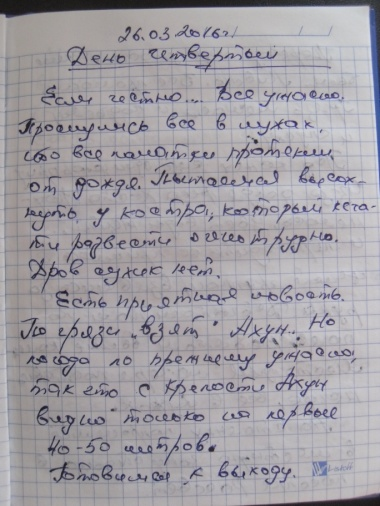 26.03.2016г.
День четвертый
Если честно... Все ужасно.
Проснулись все в лужах,
ибо все палатки протекли
от дождя. Пытаемся высох-
нуть у костра, который кста-
ти развести очень трудно.
Дров сухих нет.
Есть приятная новость.
По грязи "взят" Ахун. Но
погода по прежнему ужасна,
так что с крепости Ахун
видно только на первые
40-50 метров.
Готовимся к выходу.